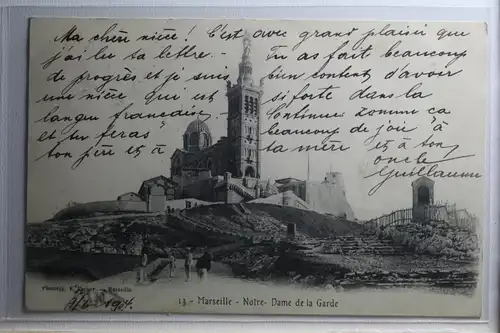 Ma chère nièce! C'est avec grand plaisir que
j'ai lu ta lettre. Tu as fait beaucoup
de progrès et je suis bien content d'avoir
une nièce qui est si forte dans la
langue française. Continue comme ça
et tu feras beaucoup de joie à
ton père et à ta mère et à ton
oncle
Guillaume
13 - Marseille - Notre-Dame de la Garde